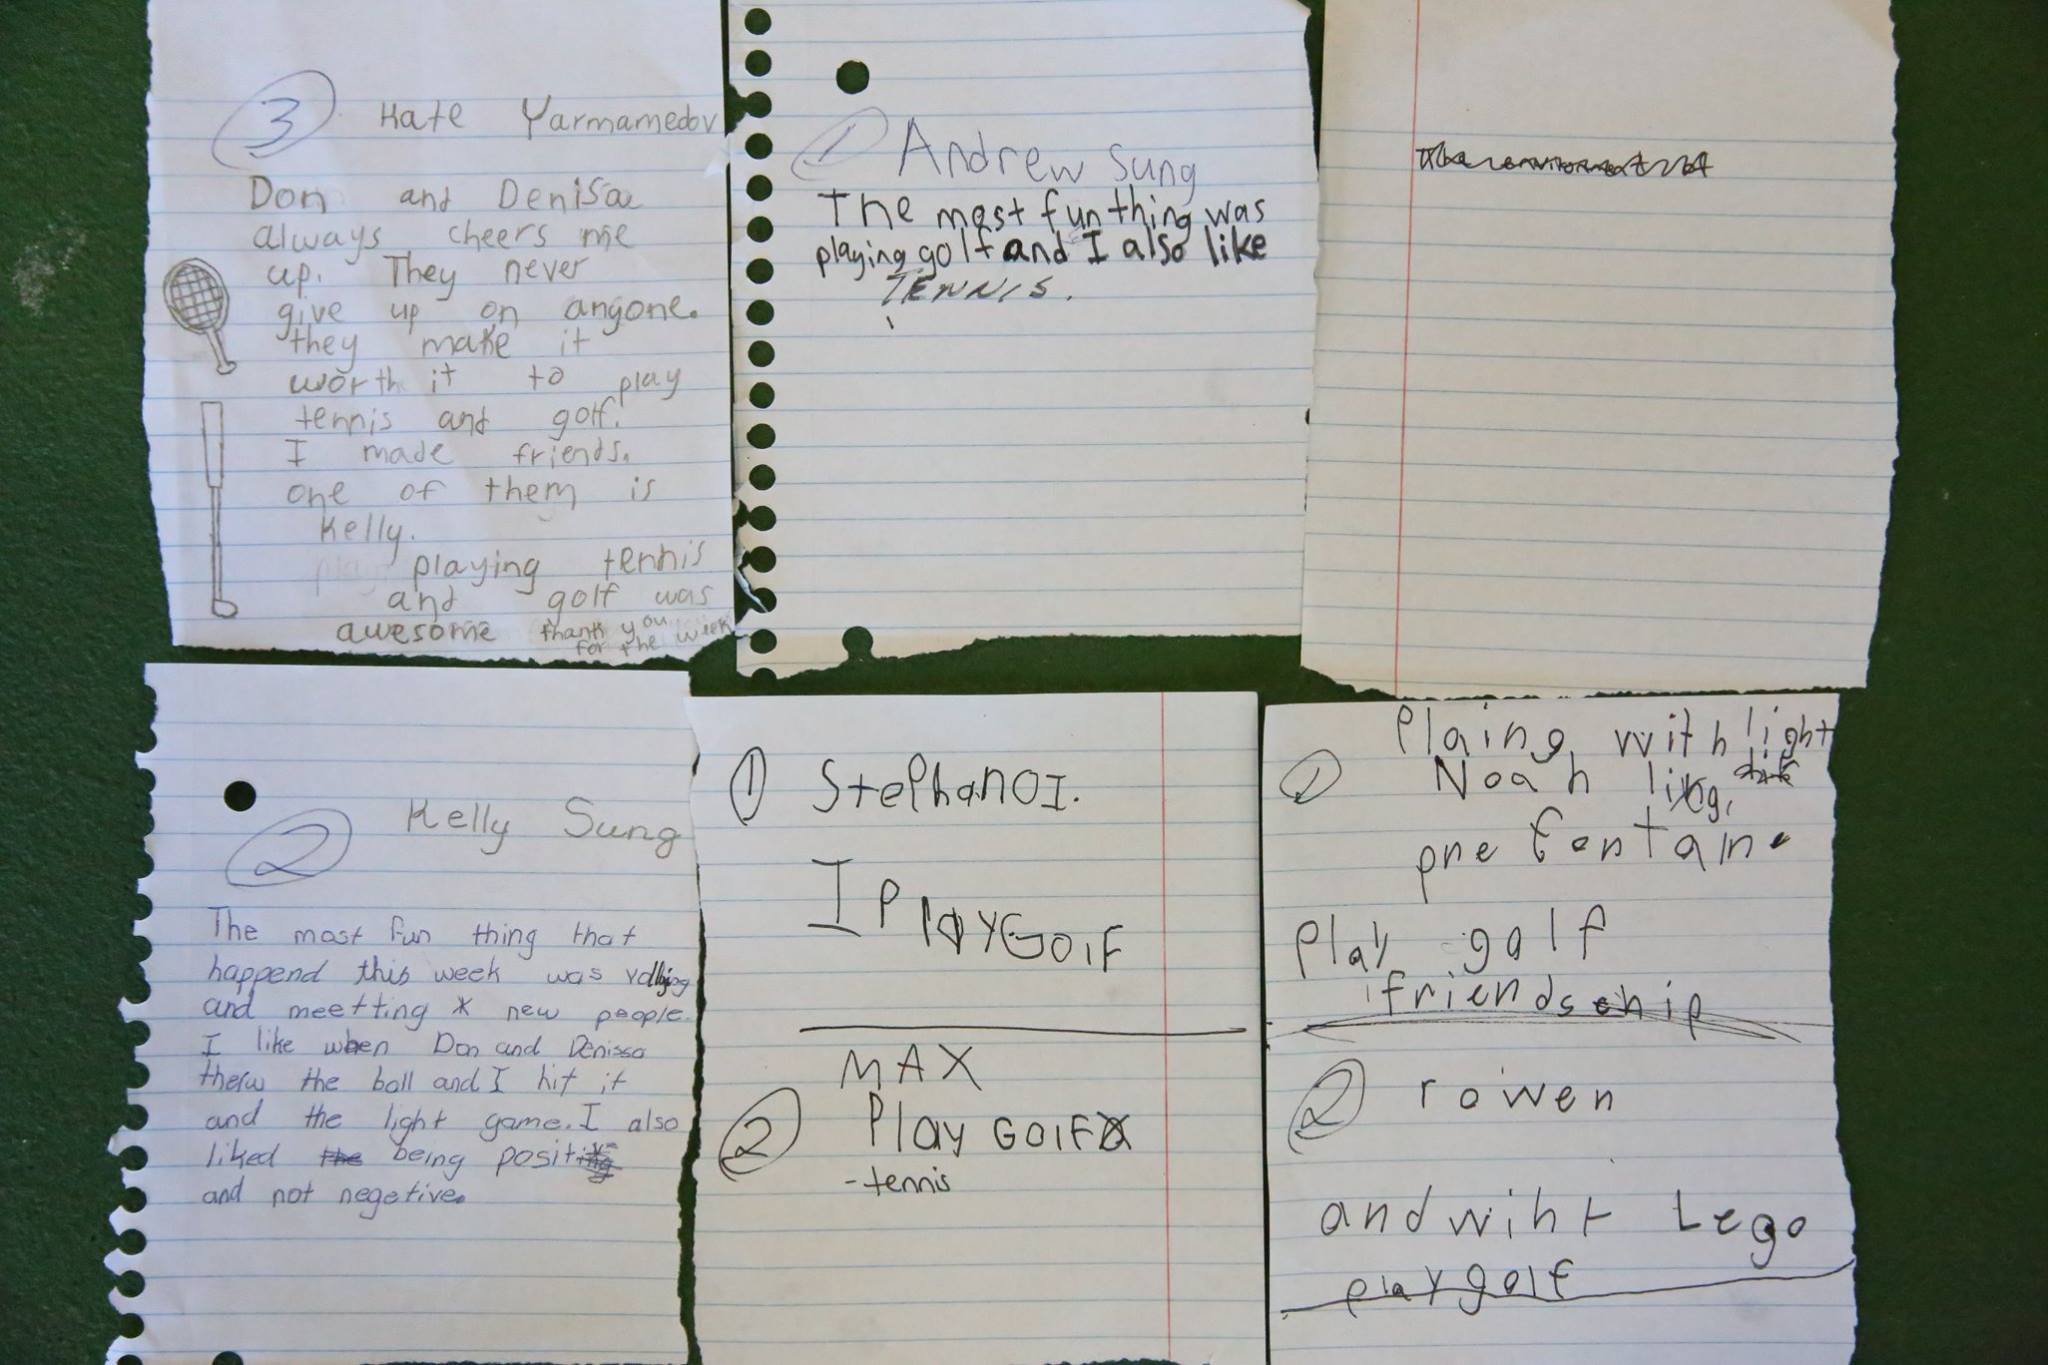 3 Kate Yarmamedov
Don and Denisa
always cheers me
up. They never
give up on angone.
they make it
worth it to play
tennis and golf.
I made friends.
one of them is
Kelly.
playing tennis
and golf was
awesome thank you
for the week
1 Andrew Sung
The most fun thing was
playing golf and I also like
TENNIS.
2 Kelly Sung
The most fun thing that
happend this week was
and meetting new people.
I like when Don and Denissa
therw the ball and I hit it
and the light game. I also
liked the being
and not negetive.
1 Stephano I.
I Play GolF
MAX
2 Play GolF
-tennis
1 Plaing with light
Noah
Play golf
friendship
2 rowen
and wiht Lego
play golf